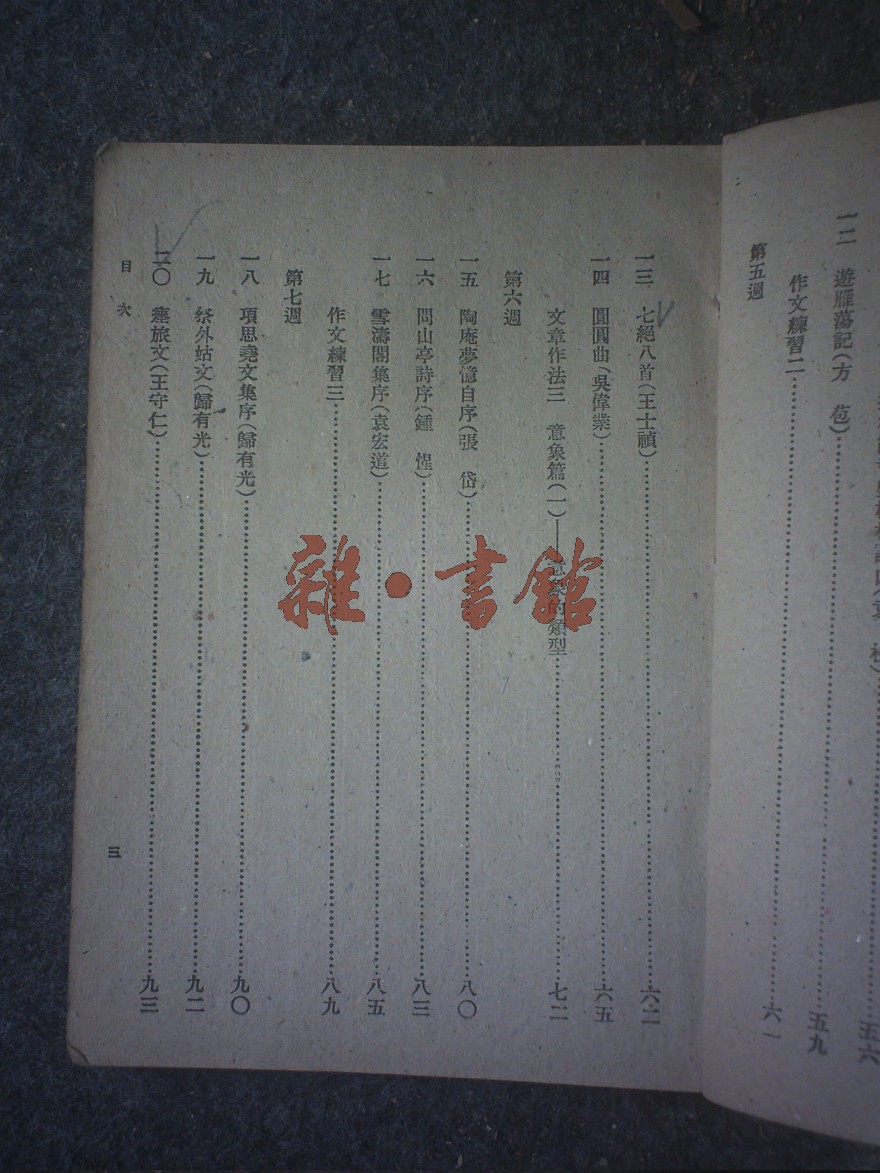 枚)……五六
一二 遊雁蕩記(方 苞)……五九
作文練習二……六一
第五週
一三 七絕八首(王士禎)……六二
一四 圓圓曲(吳偉業)……六五
文章作法三 意象篇(一)——意象的類型……七二
第六週
一五 陶庵夢憶自序(張 岱)……八〇
一六 問山亭詩序(鍾 惺)……八三
一七 雪濤閣集序(袁宏道)……八五
作文練習三……八九
第七週
一八 項思堯文集序(歸有光)……九〇
一九 祭外姑文(歸有光)……九二
二〇 瘞旅文(王守仁)……九三
目次
三
雜·書館